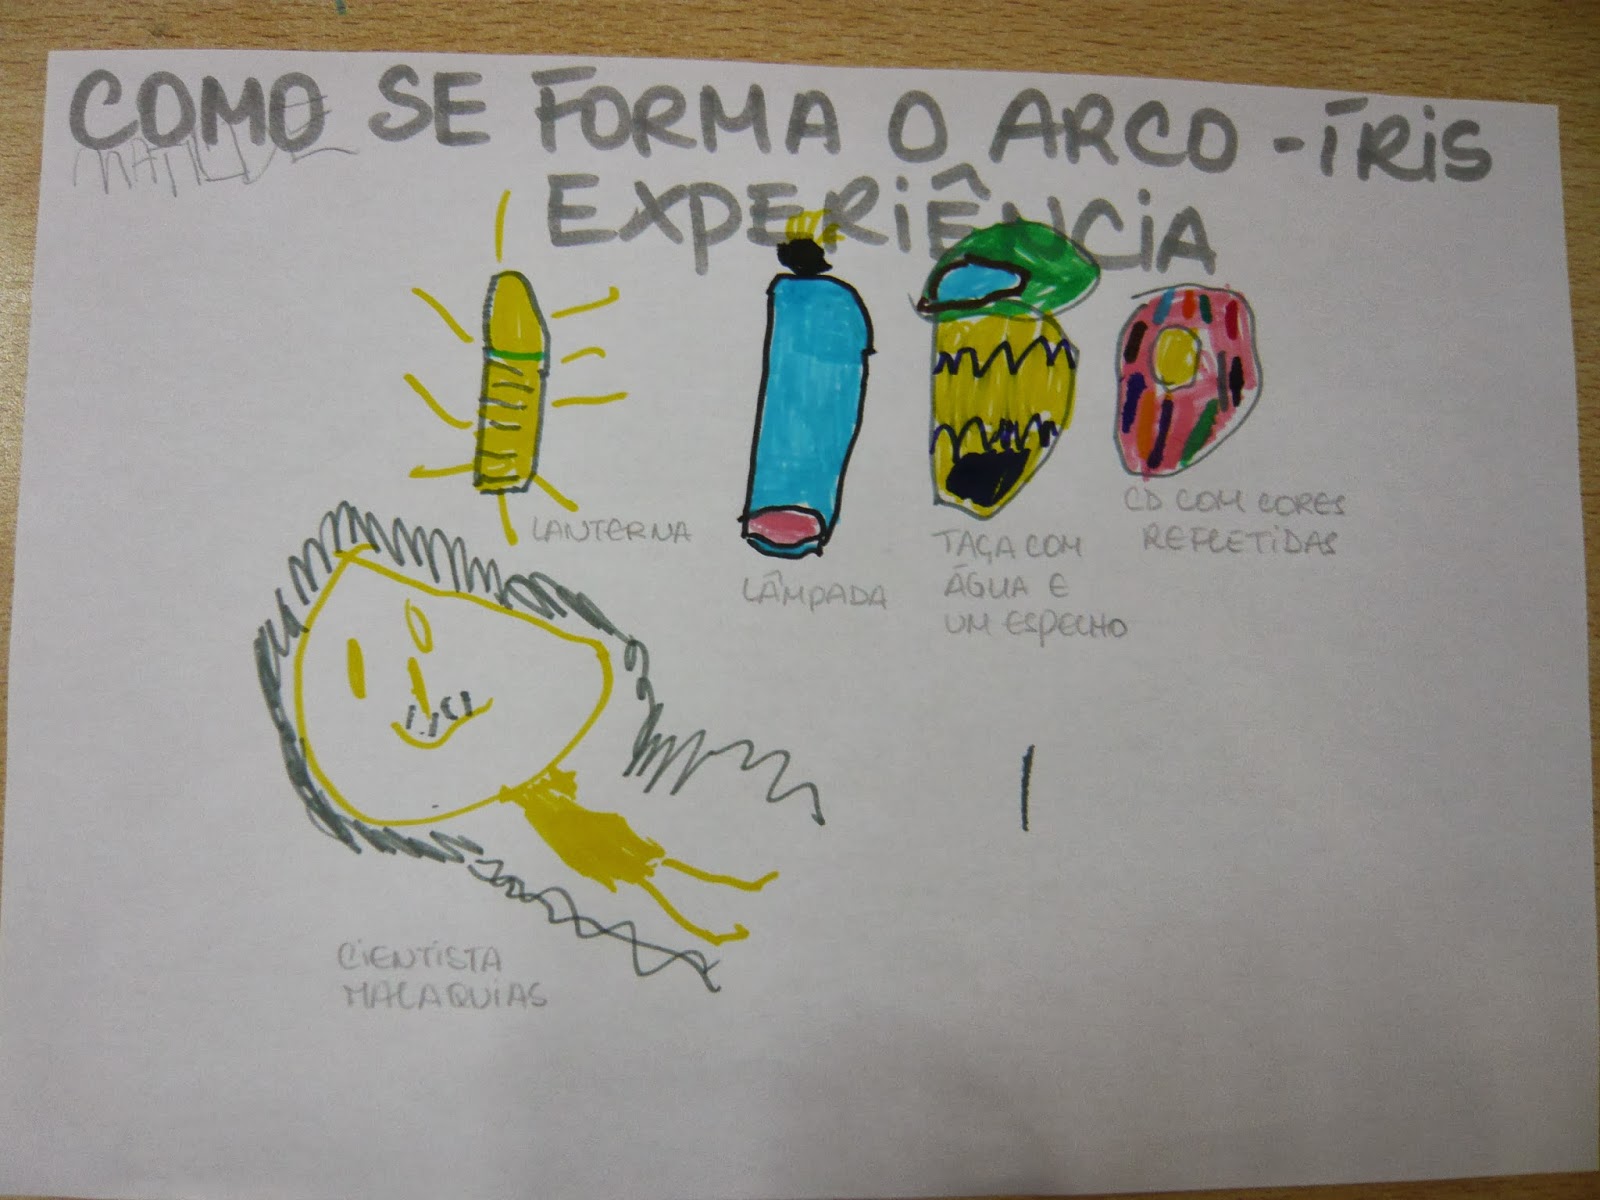 COMO SE FORMA O ARCO-ÍRIS
MATILDE
EXPERIÊNCIA
LANTERNA
LÂMPADA
TAÇA COM
ÁGUA E
UM ESPELHO
CD COM CORES
REFLETIDAS
CIENTISTA
MALAQUIAS